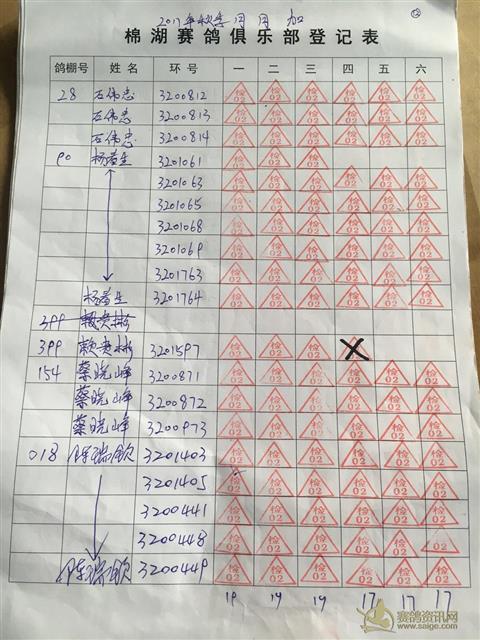 2017年秋季月月加 ⑫
棉湖赛鸽俱乐部登记表
鸽棚号 姓名 环号 一 二 三 四 五 六
28 石伟忠 3200812 检02 检02 检02 检02 检02 检02
石伟忠 3200813 检02 检02 检02 检02 检02 检02
石伟忠 3200814 检02 检02 检02 检02 检02 检02
90 杨着生 3201061 检02 检02 检02
3201063 检02 检02 检02 检02 检02 检02
3201065 检02 检02 检02 检02 检02 检02
3201068 检02 检02 检02 检02 检02 检02
3201069 检02 检02 检02 检02 检02 检02
3201763 检02 检02 检02 检02 检02 检02
杨着生 3201764 检02 检02 检02 检02 检02 检02
399 赖贵彬
399 赖贵彬 3201597 检02 检02 检02 X
154 蔡晓峰 3200871 检02 检02 检02 检02 检02 检02
蔡晓峰 3200872 检02 检02 检02 检02 检02 检02
蔡晓峰 3200973 检02 检02 检02 检02 检02 检02
018 陈瑞欽 3201403 检02 检02 检02 检02 检02 检02
3201405 检02 检02 检02 检02 检02 检02
3200441 检02 检02 检02 检02 检02 检02
3200448 检02 检02 检02 检02 检02 检02
陈瑞欽 3200449 检02 检02 检02 检02 检02 检02
19 19 19 17 17 17
赛鸽资讯网
www.saige.com